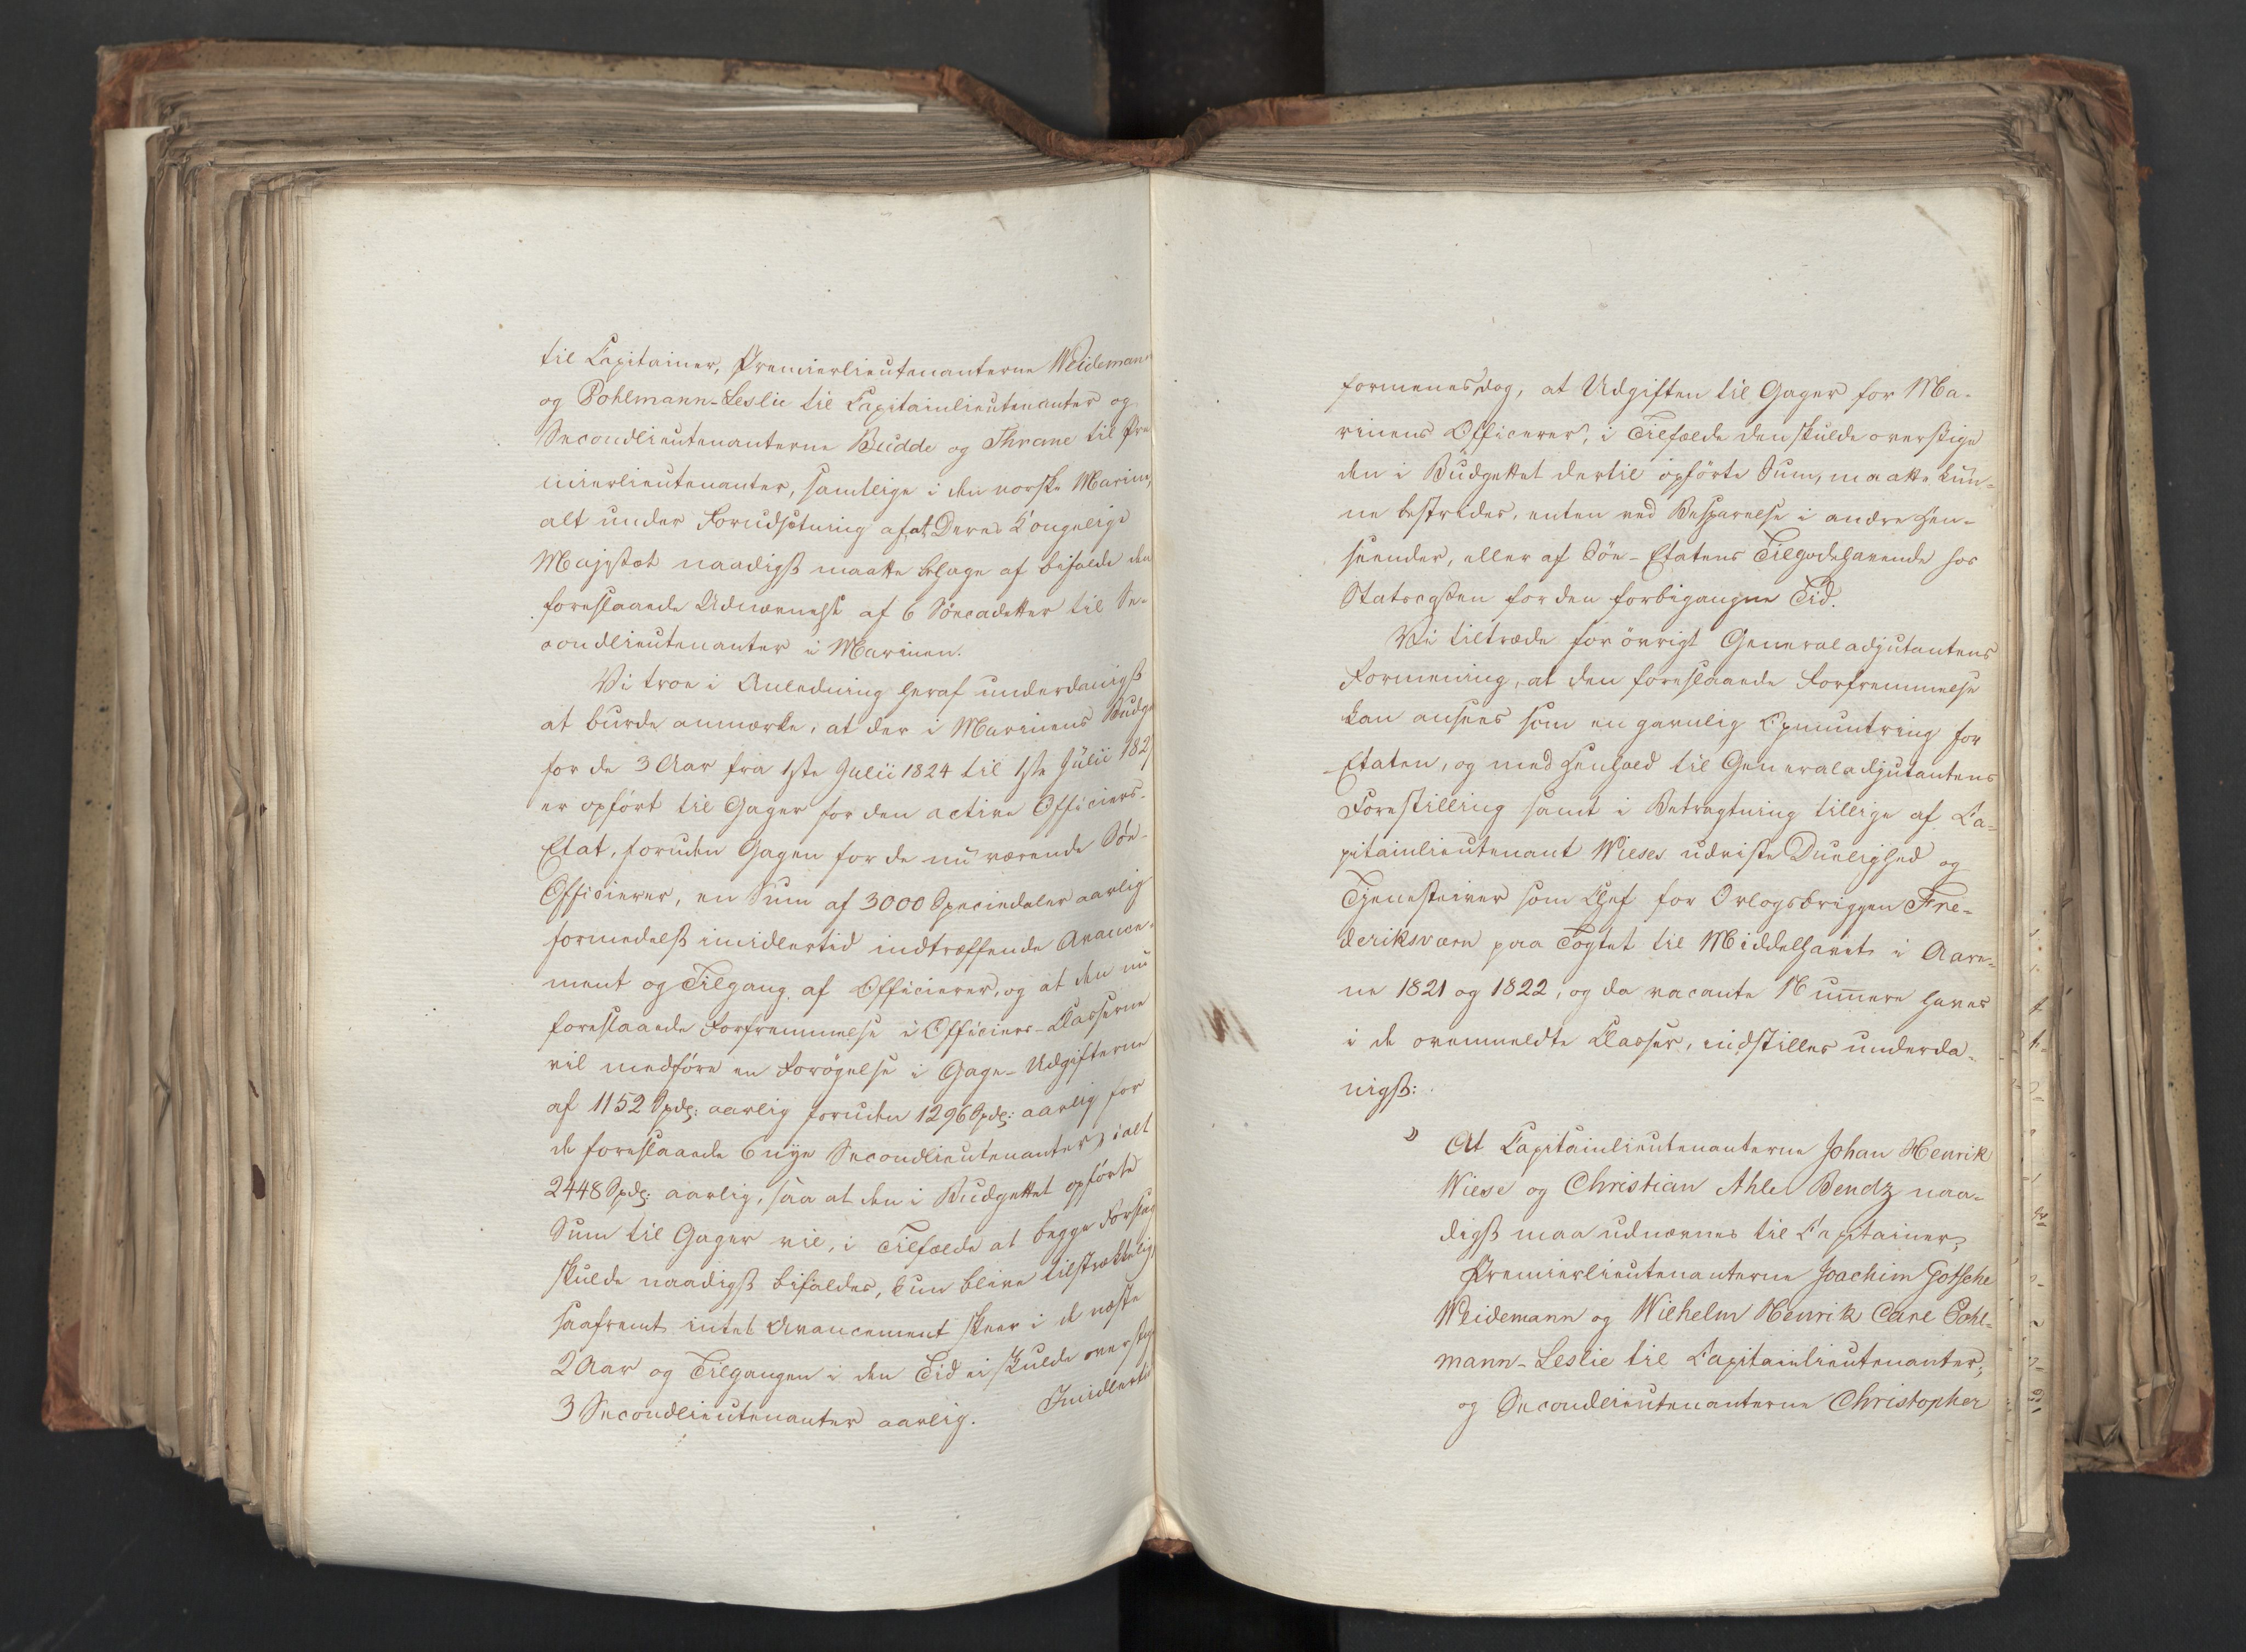 til Capitainer, Premierlieutenanterne Weidemann
og Pohlmann-Leslie til Capitainlieutenanter og
Secondlieutenanterne Budde og Thrane til Pre
mierlieutenanter, samtlige i den norske Marine,
alt under Forudsætning af, at Deres Kongelige
Majestæt naadigst maatte behage at bifalde den
foreslaaede Udnævnelse af 6 Søecadetter til Se-
condlieutenanter i Marinen.
Vi troe i Anledning heraf underdanigst
at burde anmærke, at der i Marinens Budge
for de 3 Aar fra 1ste Julii 1824 til 1ste Julii 1827
er opført til Gager for den active Officiers-
Etat, foruden Gagen for de nu værende Søe-
Officierer, en Sum af 3000 Speciedaler aarlig
formedelst imidlertid indtræffende Avance-
ment og Tilgang af Officierer, og at den nu
foreslaaede Forfremmelse i Officiers-Classerne
vil medføre en Forøgelse i Gage-Udgifterne
af 1152 Spdlr: aarlig foruden 1296 Spdlr: aarlig for
de foreslaaede 6 nye Secondlieutenanter, ialt
2448 Spdlr: aarlig, saa at den i Budgettet opførte
Sum til Gager vil, i Tilfælde at begge Forslag
skulde naadigst bifaldes, kun blive tilstrækkelig,
saafremt intet Avancement skeer i de næste
2 Aar og Tilgangen i den Tid ei skulde overstige
3 Secondlieutenanter aarlig. Imidlertid
formenes dog, at Udgiften til Gager for Ma-
rinens Officerer, i Tilfælde den skulde overstige
den i Budgettet dertil opførte Sum, maatte kun-
ne bestrides, enten ved Besparelse i andre Hen-
seender, eller af Søe-Etatens Tilgodehavende hos
Statscassen for den forbigangne Tid.
Vi tiltræde for øvrigt Generaladjutantens
Formening, at den foreslaaede Forfremmelse
kan ansees som en gavnlig Opmuntring for
Etaten, og med Henhold til Generaladjutantens
Forestilling samt i Betragtning tillige af Ca-
pitainlieutenant Wieses udviste Duelighed og
Tjenesteiver som Chef for Orlogsbriggen Fre-
deriksværn paa Togtet til Middelhavet i Aare-
ne 1821 og 1822, og da vacante Numere haves
i de ovenmeldte Classer, indstilles underda-
nigst:
1) At Capitainlieutenanterne Johan Henrik
Wiese og Christian Ahle Bendz naa-
digst maa udnævnes til Capitainer,
Premierlieutenanterne Joachim Gotsche
Weidemann og Wilhelm Henrik Carl Pohl-
mann-Leslie til Capitainlieutenanter,
og Secondlieutenanterne Christopher